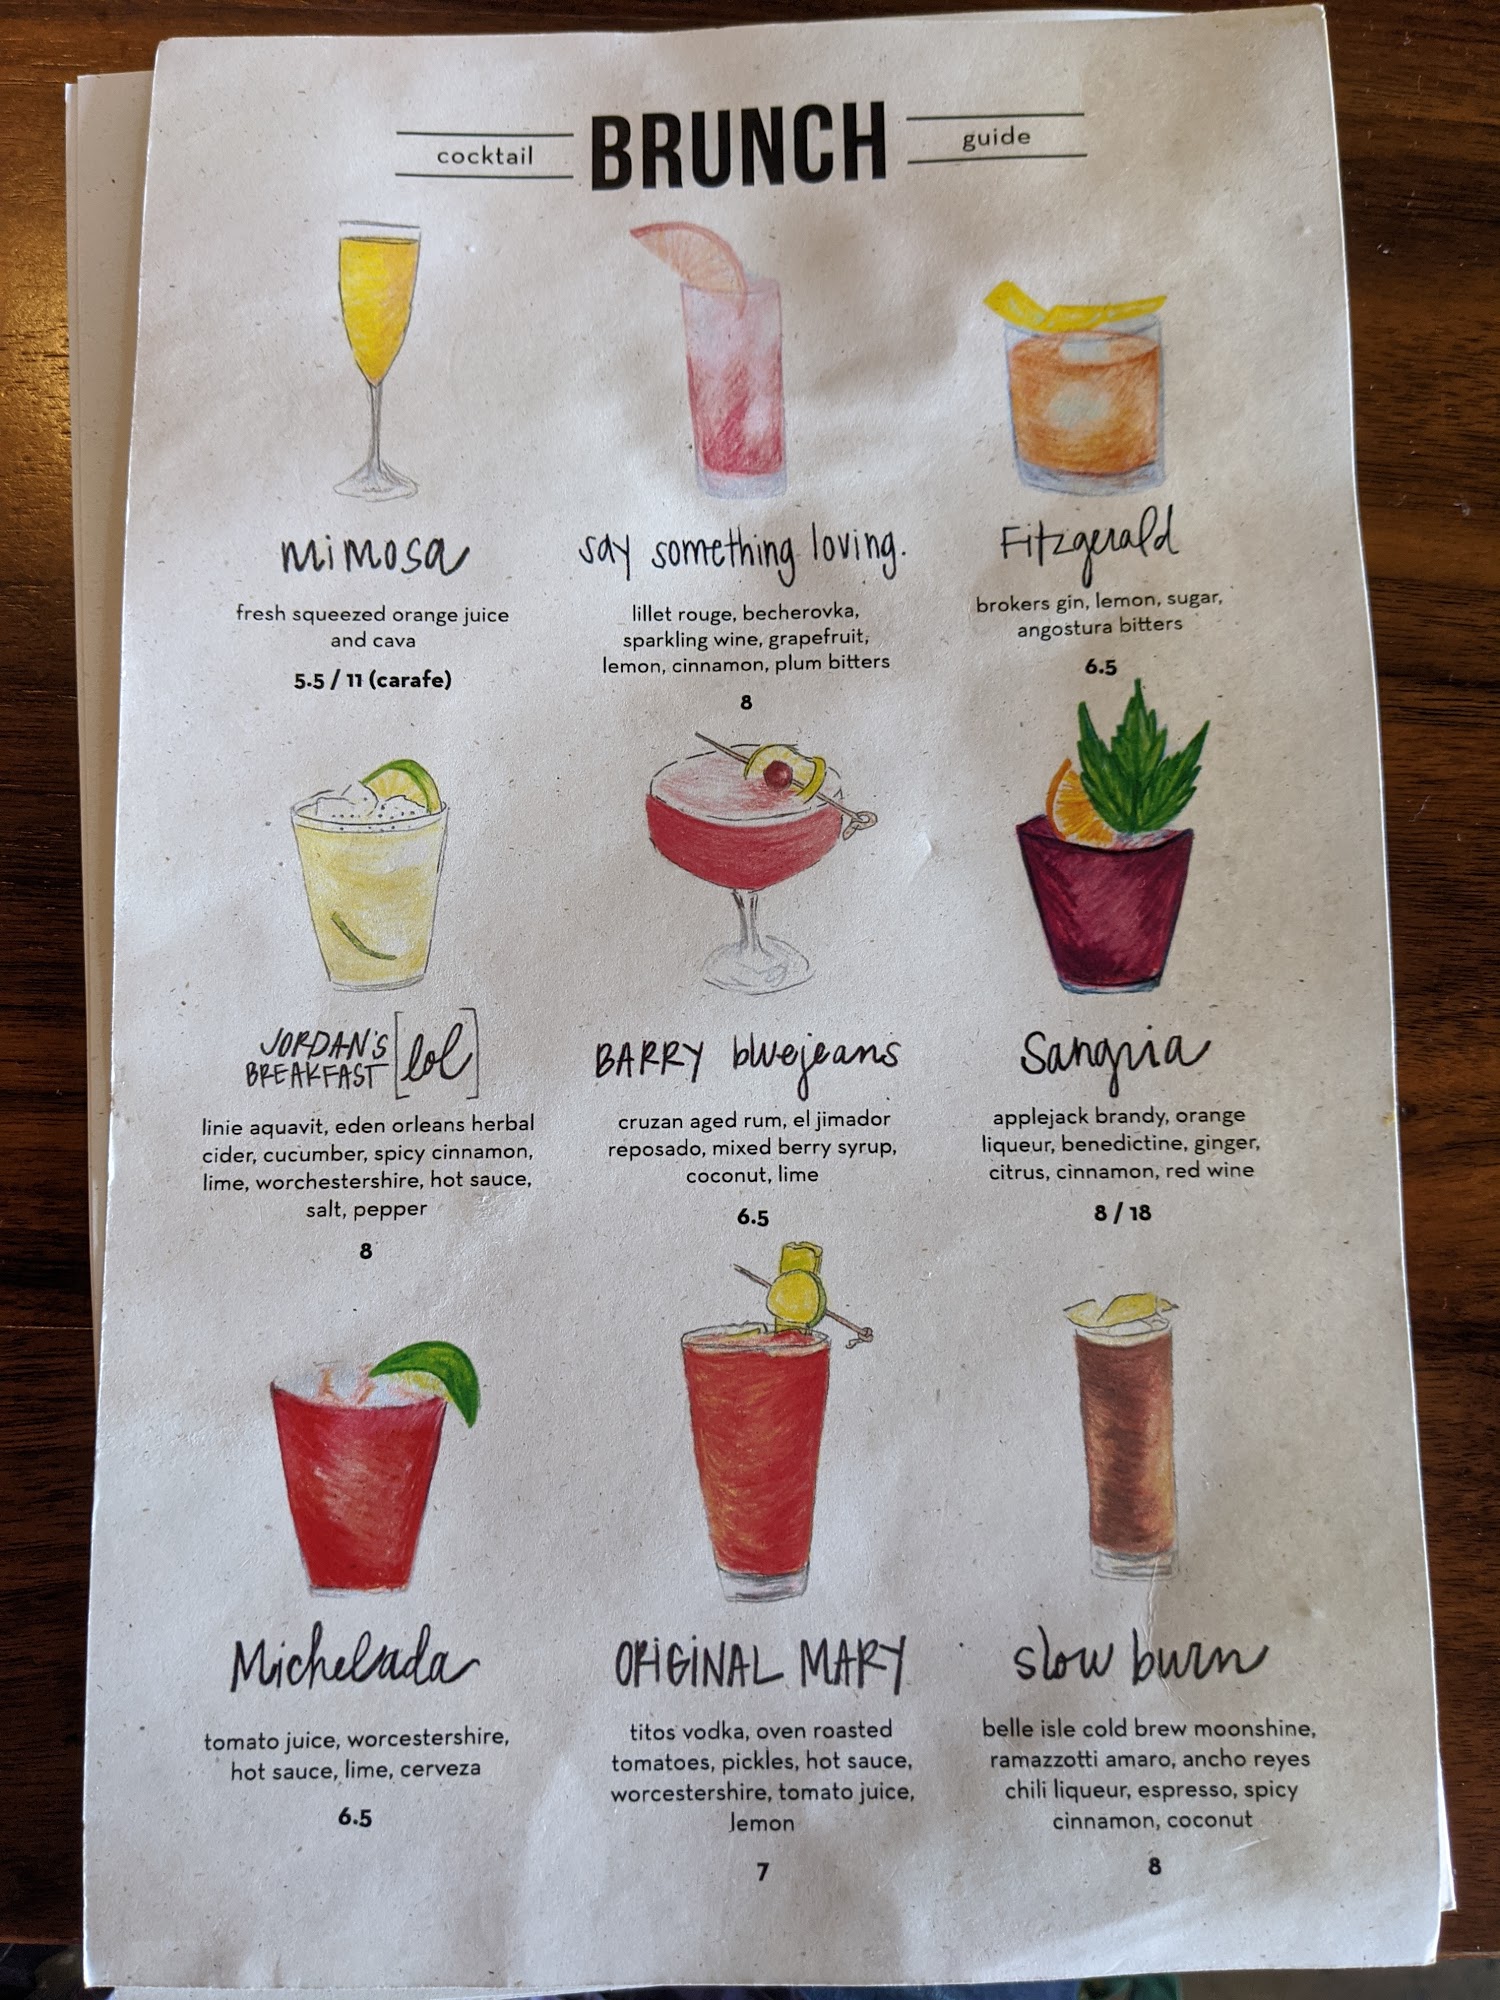 cocktail BRUNCH guide
mimosa
fresh squeezed orange juice
and cava
5.5 / 11 (carafe)
say something loving.
lillet rouge, becherovka,
sparkling wine, grapefruit,
lemon, cinnamon, plum bitters
8
Fitzgerald
brokers gin, lemon, sugar,
angostura bitters
6.5
JORDAN'S
BREAKFAST [lol]
linie aquavit, eden orleans herbal
cider, cucumber, spicy cinnamon,
lime, worchestershire, hot sauce,
salt, pepper
8
BARRY bluejeans
cruzan aged rum, el jimador
reposado, mixed berry syrup,
coconut, lime
6.5
Sangria
applejack brandy, orange
liqueur, benedictine, ginger,
citrus, cinnamon, red wine
8 / 18
Michelada
tomato juice, worcestershire,
hot sauce, lime, cerveza
6.5
ORIGINAL MARY
titos vodka, oven roasted
tomatoes, pickles, hot sauce,
worcestershire, tomato juice,
lemon
7
slow burn
belle isle cold brew moonshine,
ramazzotti amaro, ancho reyes
chili liqueur, espresso, spicy
cinnamon, coconut
8